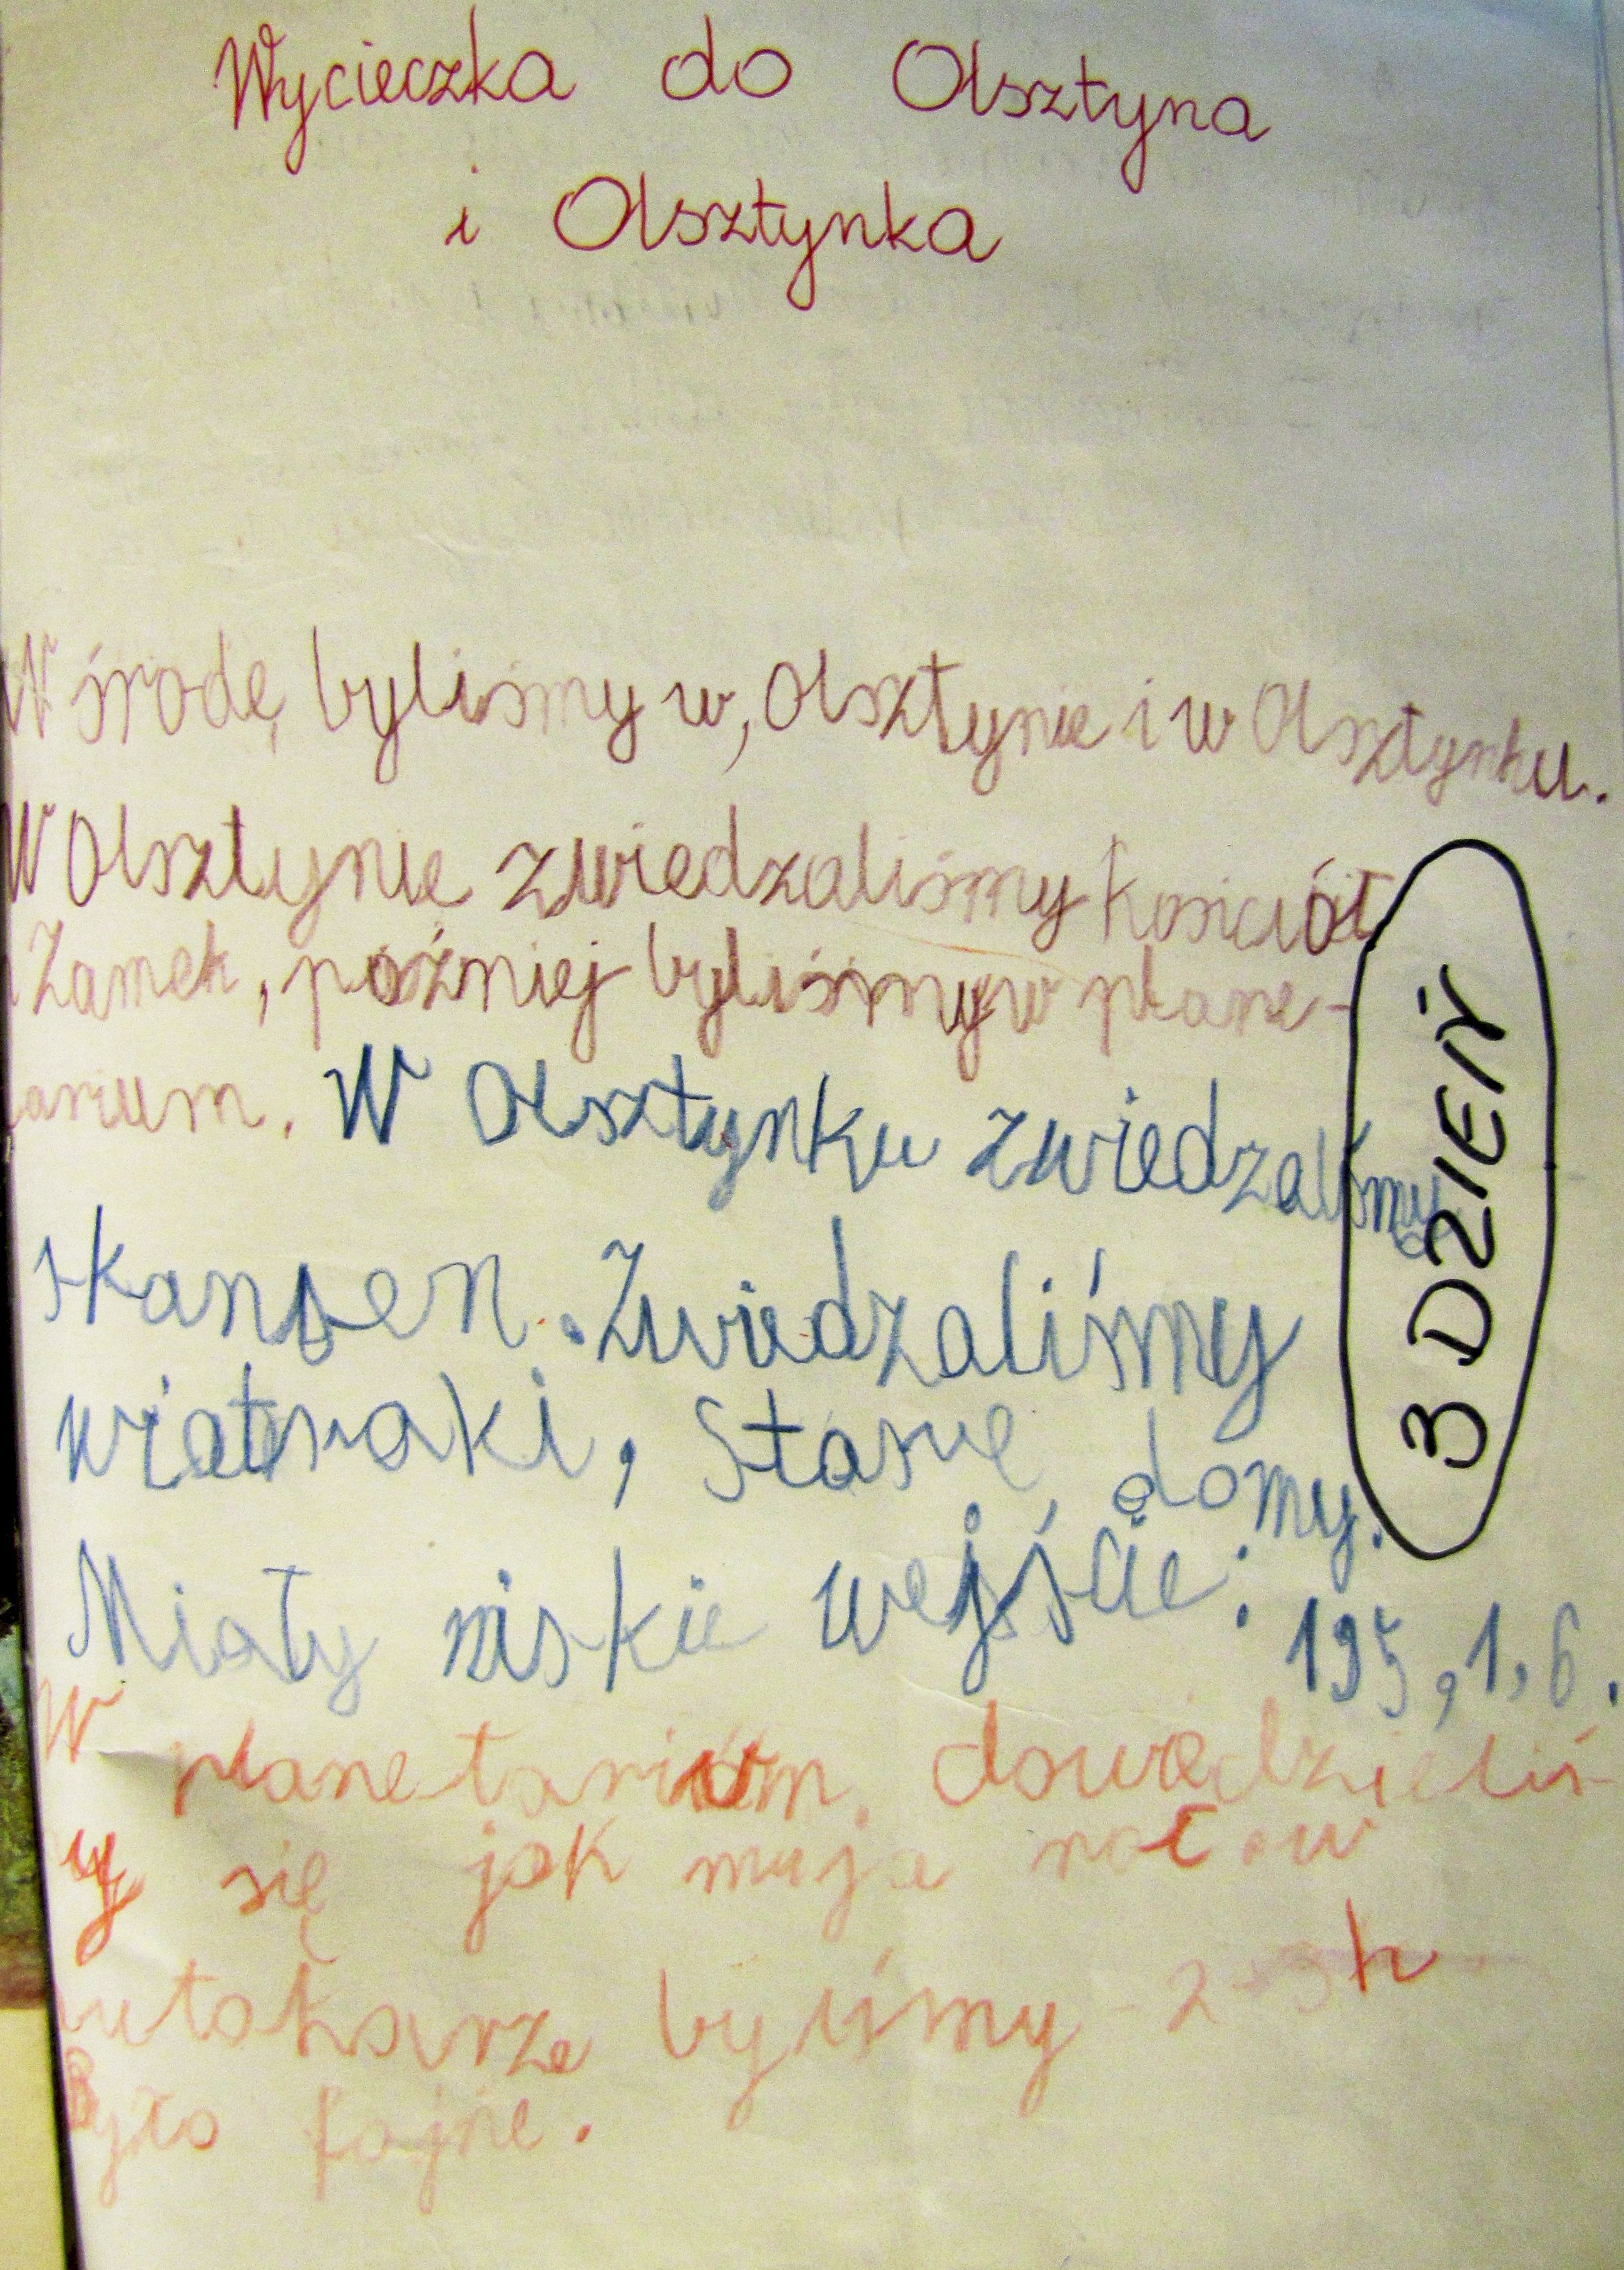 Wycieczka do Olsztyna
i Olsztynka
W środę, byliśmy w, Olsztynie i w Olsztynku.
W Olsztynie zwiedzaliśmy kościół
i Zamek, poźniej byliśmy w plane-
tarium. W Olsztynku zwiedzaliśmy
skansen. Zwiedzaliśmy
wiatraki, Stare domy.
Miały niskie wejście: 195, 1,6.
W planetarium dowiedzieliś-
my się jak mija noc w
autokarze byliśmy 2-3h
Było fajne.
3 DZIEŃ